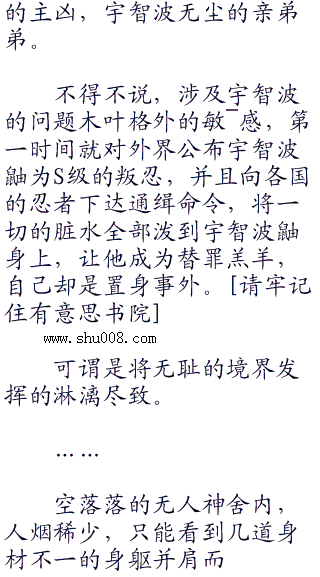 的主凶，宇智波无尘的亲弟
弟。
不得不说，涉及宇智波
的问题木叶格外的敏¯感，第
一时间就对外界公布宇智波
鼬为S级的叛忍，并且向各国
的忍者下达通缉命令，将一
切的脏水全部泼到宇智波鼬
身上，让他成为替罪羔羊，
自己却是置身事外。[请牢记
住有意思书院]
www.shu008.com
可谓是将无耻的境界发
挥的淋漓尽致。
……
空落落的无人神舍内，
人烟稀少，只能看到几道身
材不一的身躯并肩而